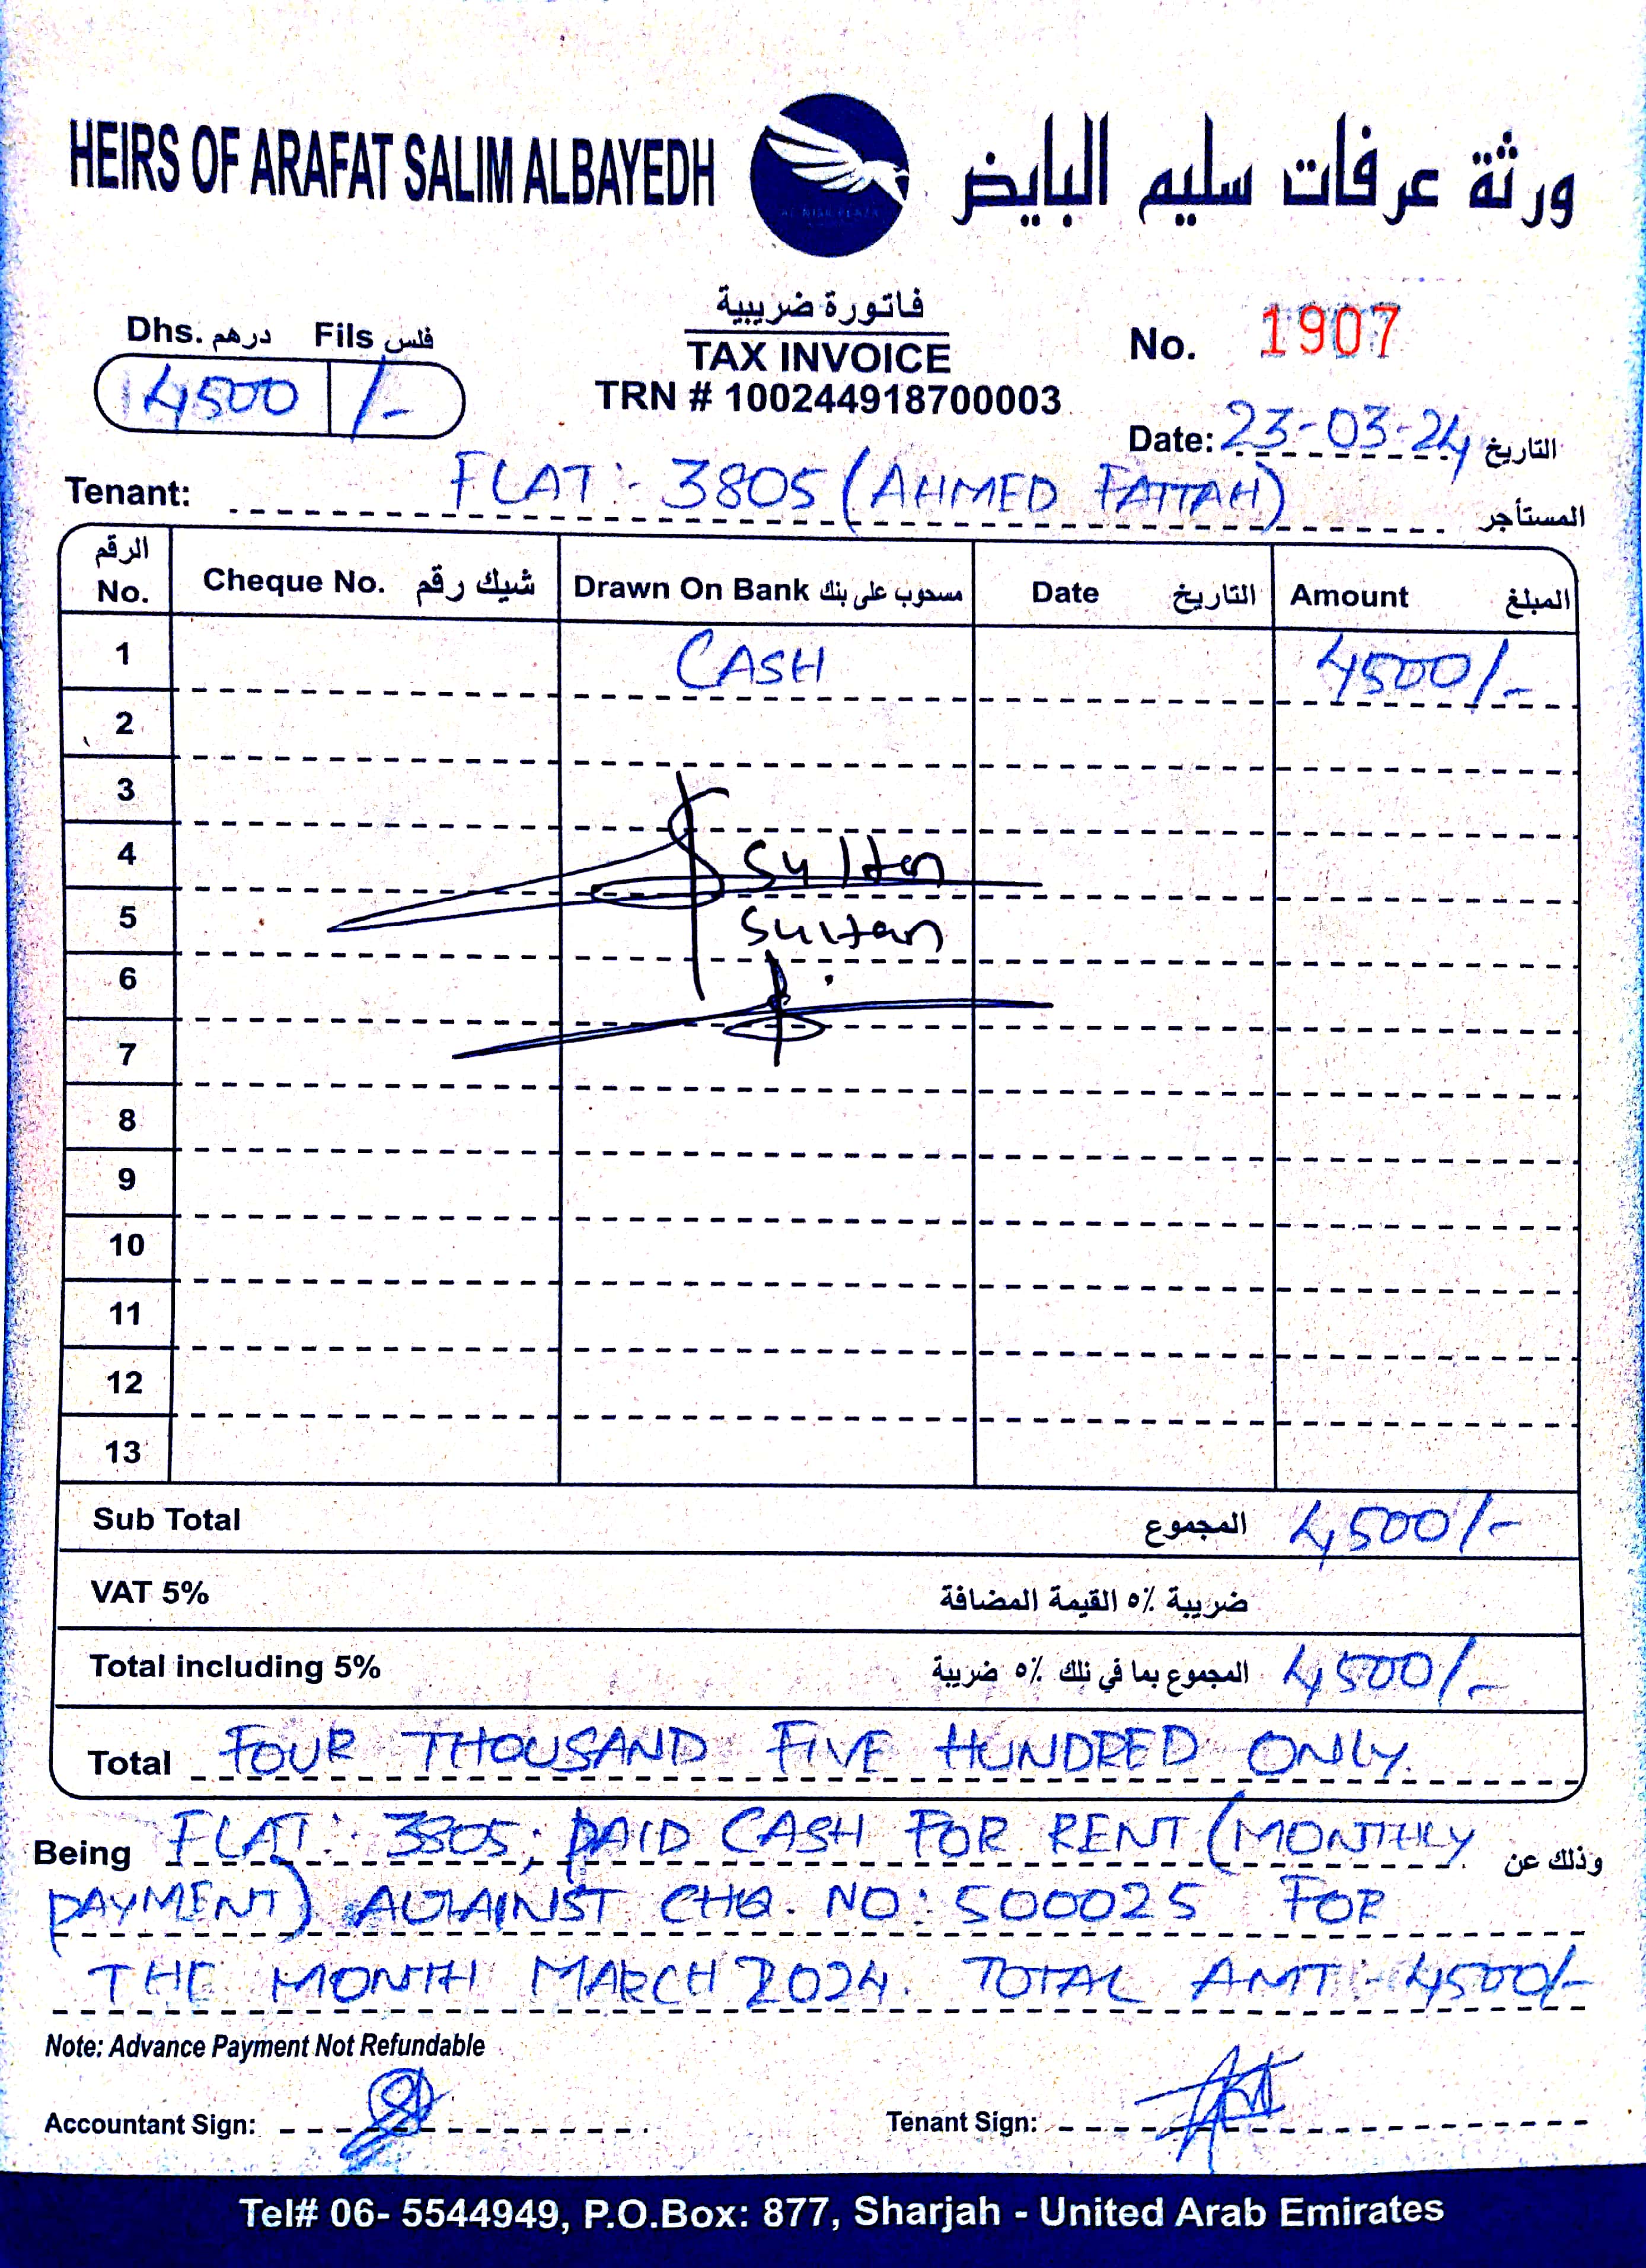 HEIRS OF ARAFAT SALIM ALBAYEDH ورثة عرفات سليم البايض
Dhs. درهم Fils فلس
4500 /-
فاتورة ضريبية
TAX INVOICE
TRN # 100244918700003
No. 1907
Date: 23-03-24 التاريخ
Tenant: FLAT:- 3805 (AHMED FATTAH) المستأجر
الرقم No. Cheque No. شيك رقم Drawn On Bank مسحوب على بنك Date التاريخ Amount المبلغ
1 CASH 4500/-
2
3
4 Sultan
5 Sultan
6
7
8
9
10
11
12
13
Sub Total المجموع 4,500/-
VAT 5% ضريبة ٥٪ القيمة المضافة
Total including 5% المجموع بما في ذلك ٥٪ ضريبة 4,500/-
Total FOUR THOUSAND FIVE HUNDRED ONLY.
Being FLAT:- 3805; PAID CASH FOR RENT (MONTHLY وذلك عن
PAYMENT) AGAINST CHQ. NO: 500025 FOR
THE MONTH MARCH 2024. TOTAL AMT:- 4500/-
Note: Advance Payment Not Refundable
Accountant Sign: Tenant Sign:
Tel# 06- 5544949, P.O.Box: 877, Sharjah - United Arab Emirates